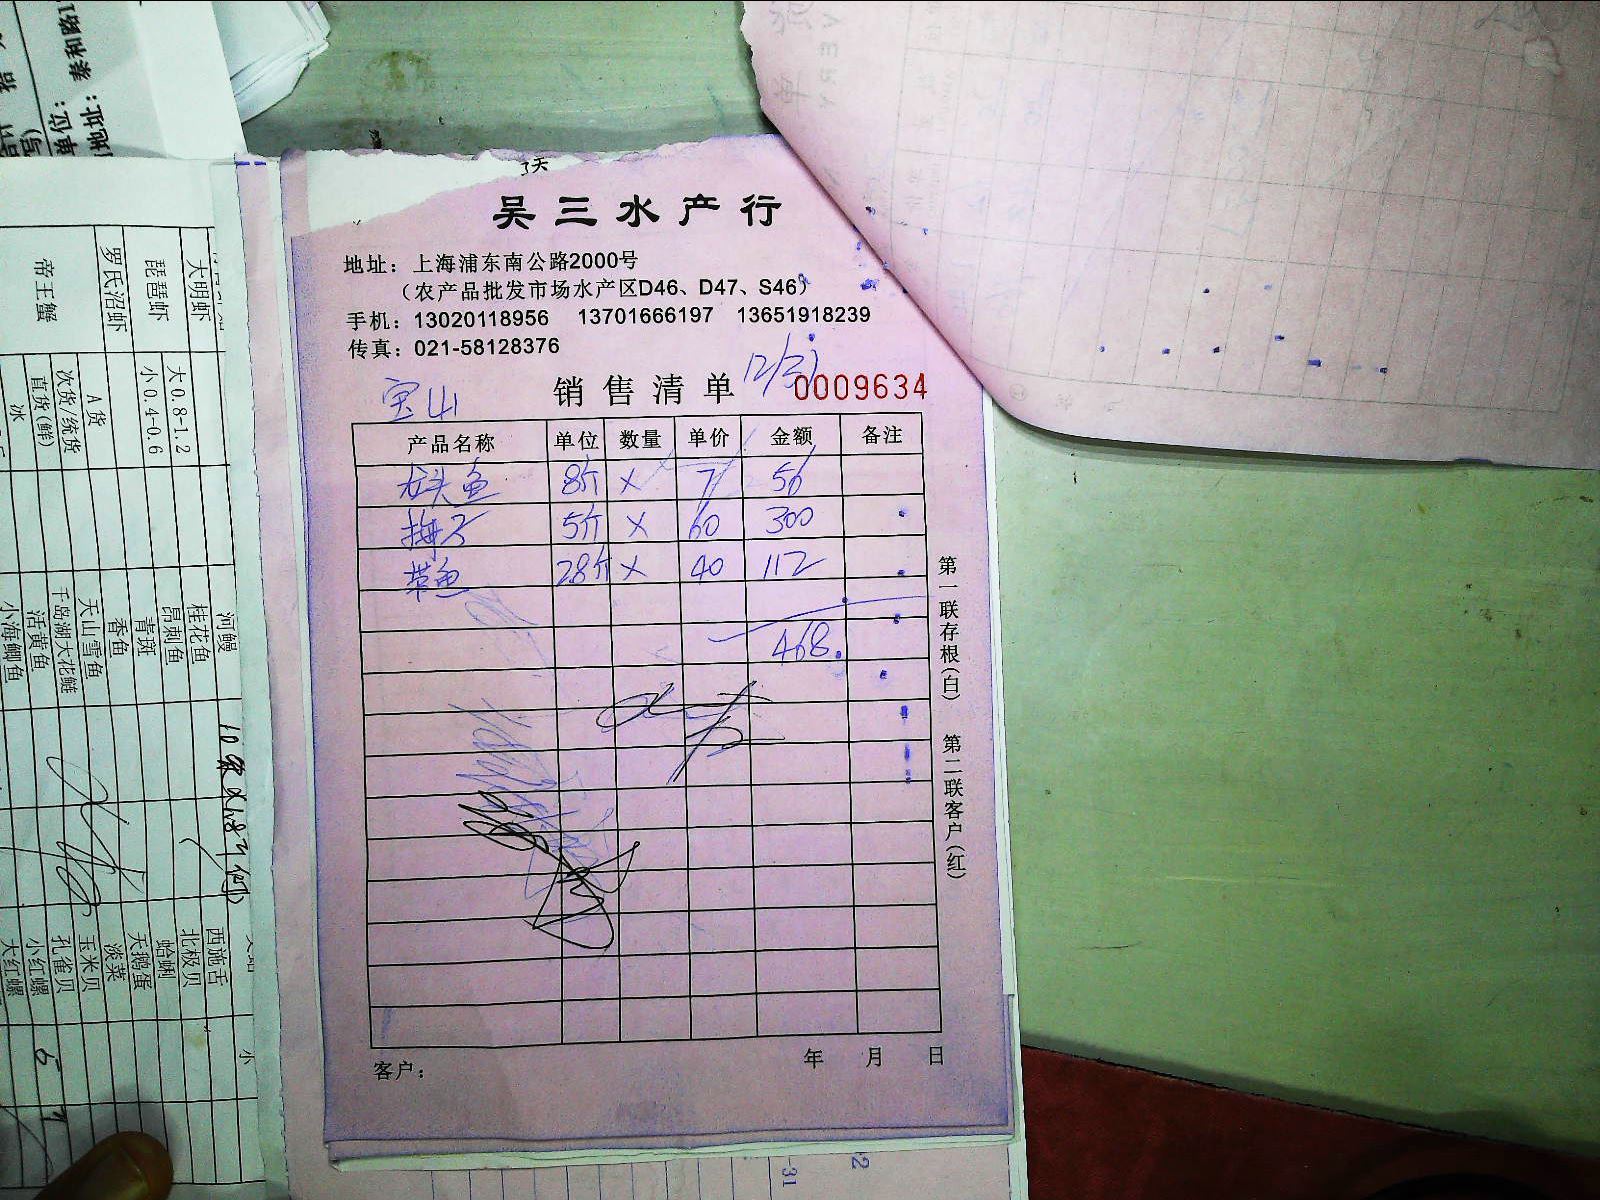 吴三水产行
地址：上海浦东南公路2000号
（农产品批发市场水产区D46、D47、S46）
手机：13020118956 13701666197 13651918239
传真：021-58128376
宝山 销售清单 0009634
产品名称 单位 数量 单价 金额 备注
龙头鱼 8斤 X 7 56
梅子 5斤 X 60 300
带鱼 28斤 X 40 112
468.
客户： 年 月 日
第一联存根（白） 第二联客户（红）
单位：
地址：泰和路1
大明虾
琵琶虾
罗氏沼虾
帝王蟹
大0.8-1.2
小0.4-0.6
A货
次货/统货
直货(鲜)
冰
河鳗
桂花鱼
昂刺鱼
青斑
香鱼
天山雪鱼
千岛湖大花鲢
活黄鱼
小海鲫鱼
西施舌
北极贝
蛤蜊
天鹅蛋
淡菜
玉米贝
孔雀贝
小红螺
大红螺
小
5